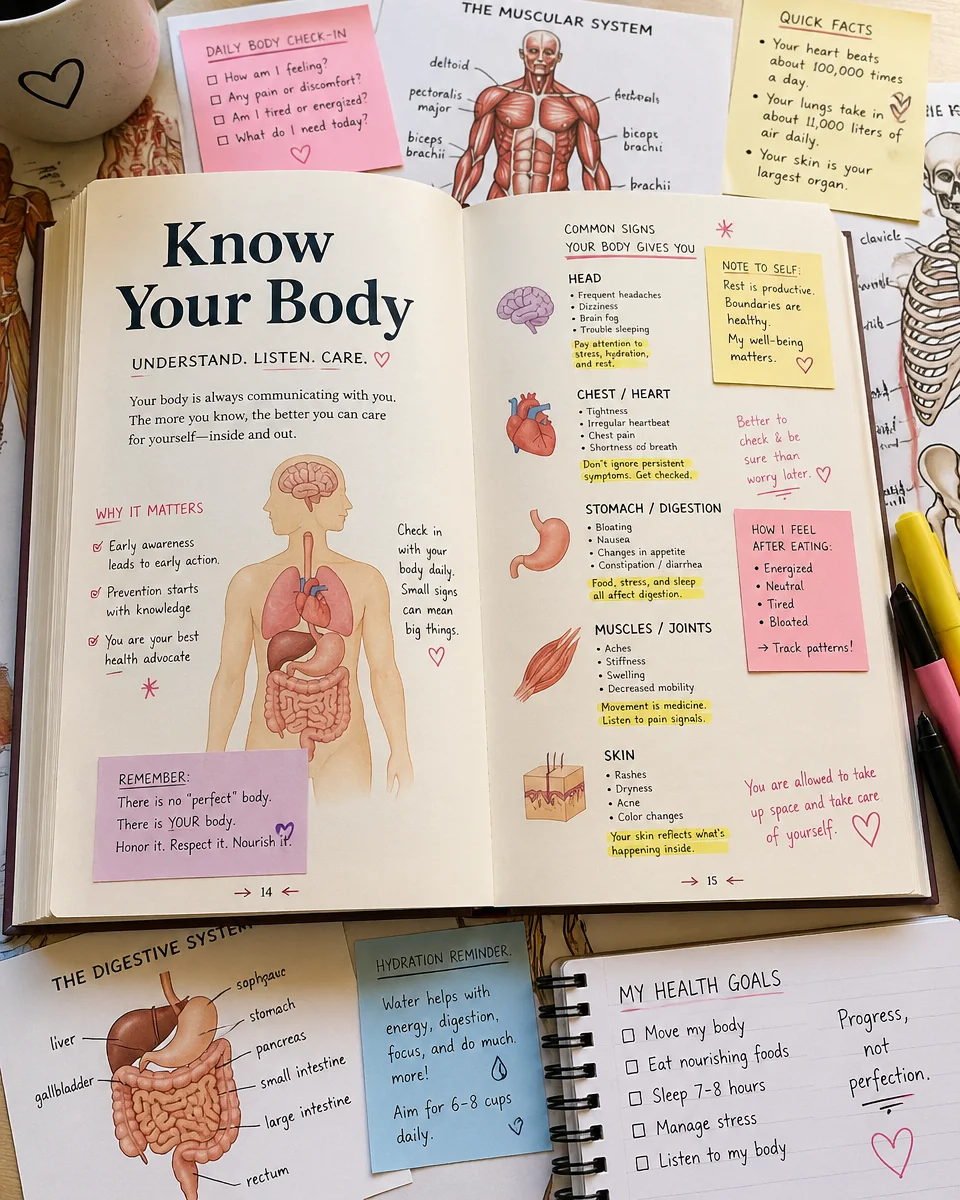 DAILY BODY CHECK-IN
How am I feeling?
Any pain or discomfort?
Am I tired or energized?
What do I need today?
THE MUSCULAR SYSTEM
deltoid
pectoralis
major
biceps
brachii
bicops
brachii
brachii
QUICK FACTS
• Your heart beats
about 100,000 times
a day.
• Your lungs take in
about 11,000 liters of
air daily.
• Your skin is your
largest organ.
clavicle
Know
Your Body
UNDERSTAND. LISTEN. CARE.
Your body is always communicating with you.
The more you know, the better you can care
for yourself—inside and out.
WHY IT MATTERS
Early awareness
leads to early action.
Prevention starts
with knowledge
You are your best
health advocate
Check in
with your
body daily.
Small signs
can mean
big things.
REMEMBER:
There is no "perfect" body.
There is YOUR body.
Honor it. Respect it. Nourish it.
14
COMMON SIGNS
YOUR BODY GIVES YOU
HEAD
• Frequent headaches
• Dizziness
• Brain fog
• Trouble sleeping
Pay attention to
stress, hydration,
and rest.
CHEST / HEART
• Tightness
• Irregular heartbeat
• Chest pain
• Shortness of breath
Don't ignore persistent
symptoms. Get checked.
STOMACH / DIGESTION
• Bloating
• Nausea
• Changes in appetite
• Constipation / diarrhea
Food, stress, and sleep
all affect digestion.
MUSCLES / JOINTS
• Aches
• Stiffness
• Swelling
• Decreased mobility
Movement is medicine.
Listen to pain signals.
SKIN
• Rashes
• Dryness
• Acne
• Color changes
Your skin reflects what's
happening inside.
NOTE TO SELF:
Rest is productive.
Boundaries are
healthy.
My well-being
matters.
Better to
check & be
sure than
worry later.
HOW I FEEL
AFTER EATING:
• Energized
• Neutral
• Tired
• Bloated
→ Track patterns!
You are allowed to take
up space and take care
of yourself.
15
THE DIGESTIVE SYSTEM
liver
gallbladder
stomach
pancreas
small intestine
large intestine
rectum
HYDRATION REMINDER.
Water helps with
energy, digestion,
focus, and do much.
more!
Aim for 6-8 cups
daily.
MY HEALTH GOALS
Move my body
Eat nourishing foods
Sleep 7-8 hours
Manage stress
Listen to my body
Progress,
not
perfection.